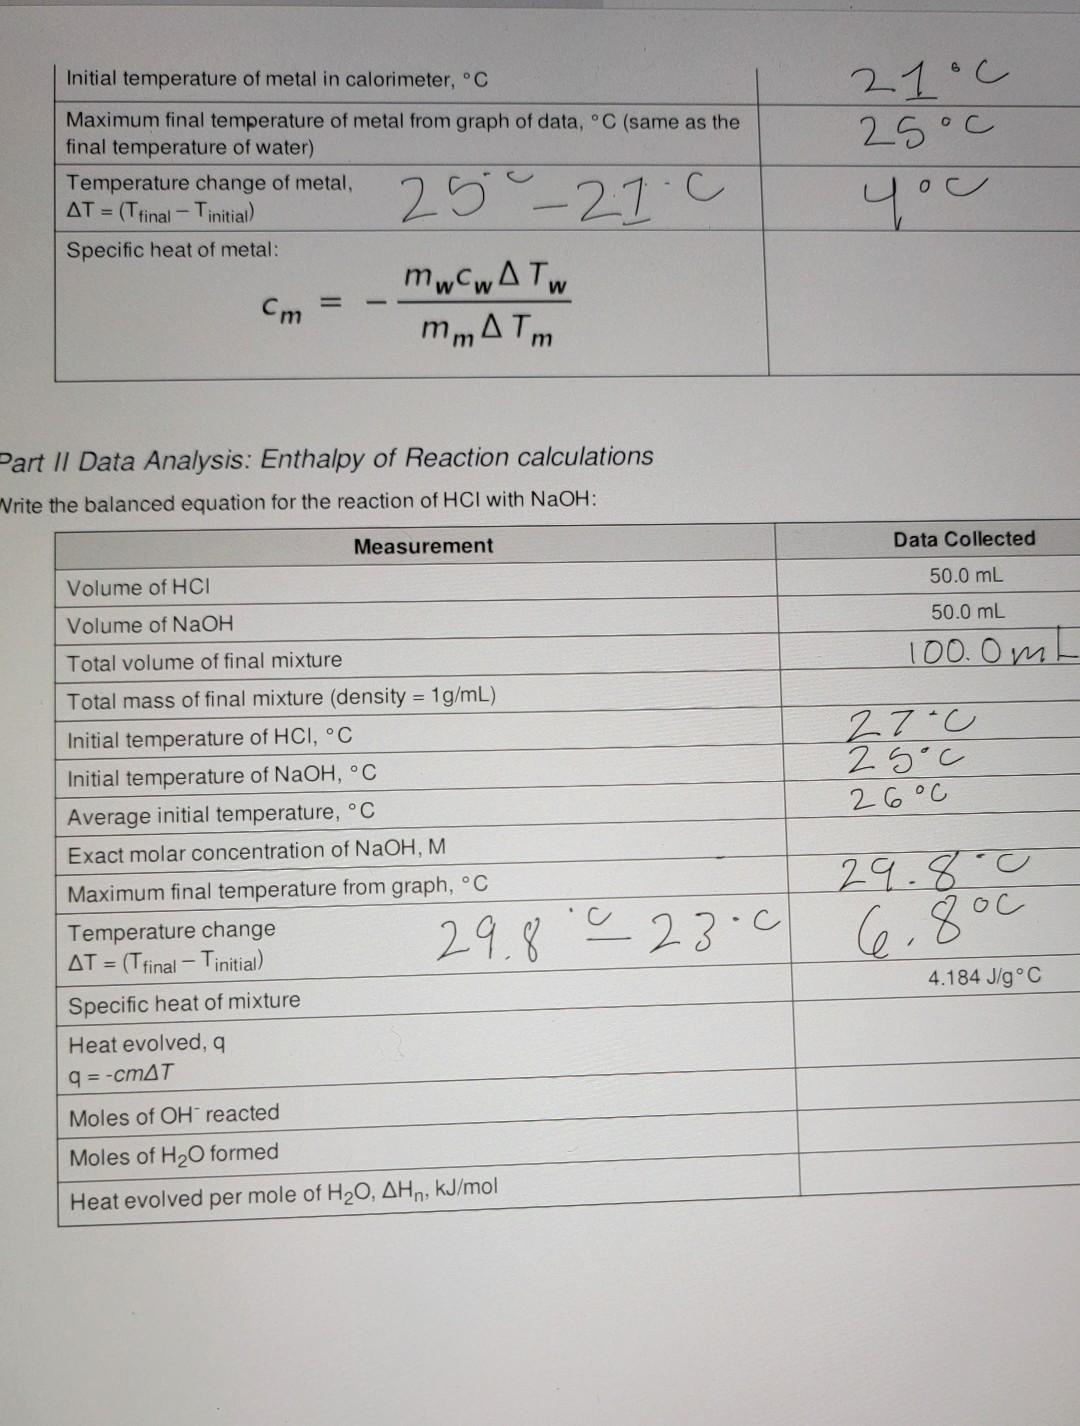 Initial temperature of metal in calorimeter, °C 21°C
Maximum final temperature of metal from graph of data, °C (same as the final temperature of water) 25°C
Temperature change of metal,
ΔT = (Tfinal – Tinitial) 25°C – 21°C 4°C
Specific heat of metal:
cm = – mwcwΔTw / mmΔTm
Part II Data Analysis: Enthalpy of Reaction calculations
Write the balanced equation for the reaction of HCl with NaOH:
Measurement Data Collected
Volume of HCl 50.0 mL
Volume of NaOH 50.0 mL
Total volume of final mixture 100.0 mL
Total mass of final mixture (density = 1g/mL)
Initial temperature of HCl, °C 27°C
Initial temperature of NaOH, °C 25°C
Average initial temperature, °C 26°C
Exact molar concentration of NaOH, M
Maximum final temperature from graph, °C 29.8°C
Temperature change
ΔT = (Tfinal – Tinitial) 29.8°C – 23°C 6.8°C
Specific heat of mixture 4.184 J/g°C
Heat evolved, q
q = -cmΔT
Moles of OH⁻ reacted
Moles of H₂O formed
Heat evolved per mole of H₂O, ΔHn, kJ/mol